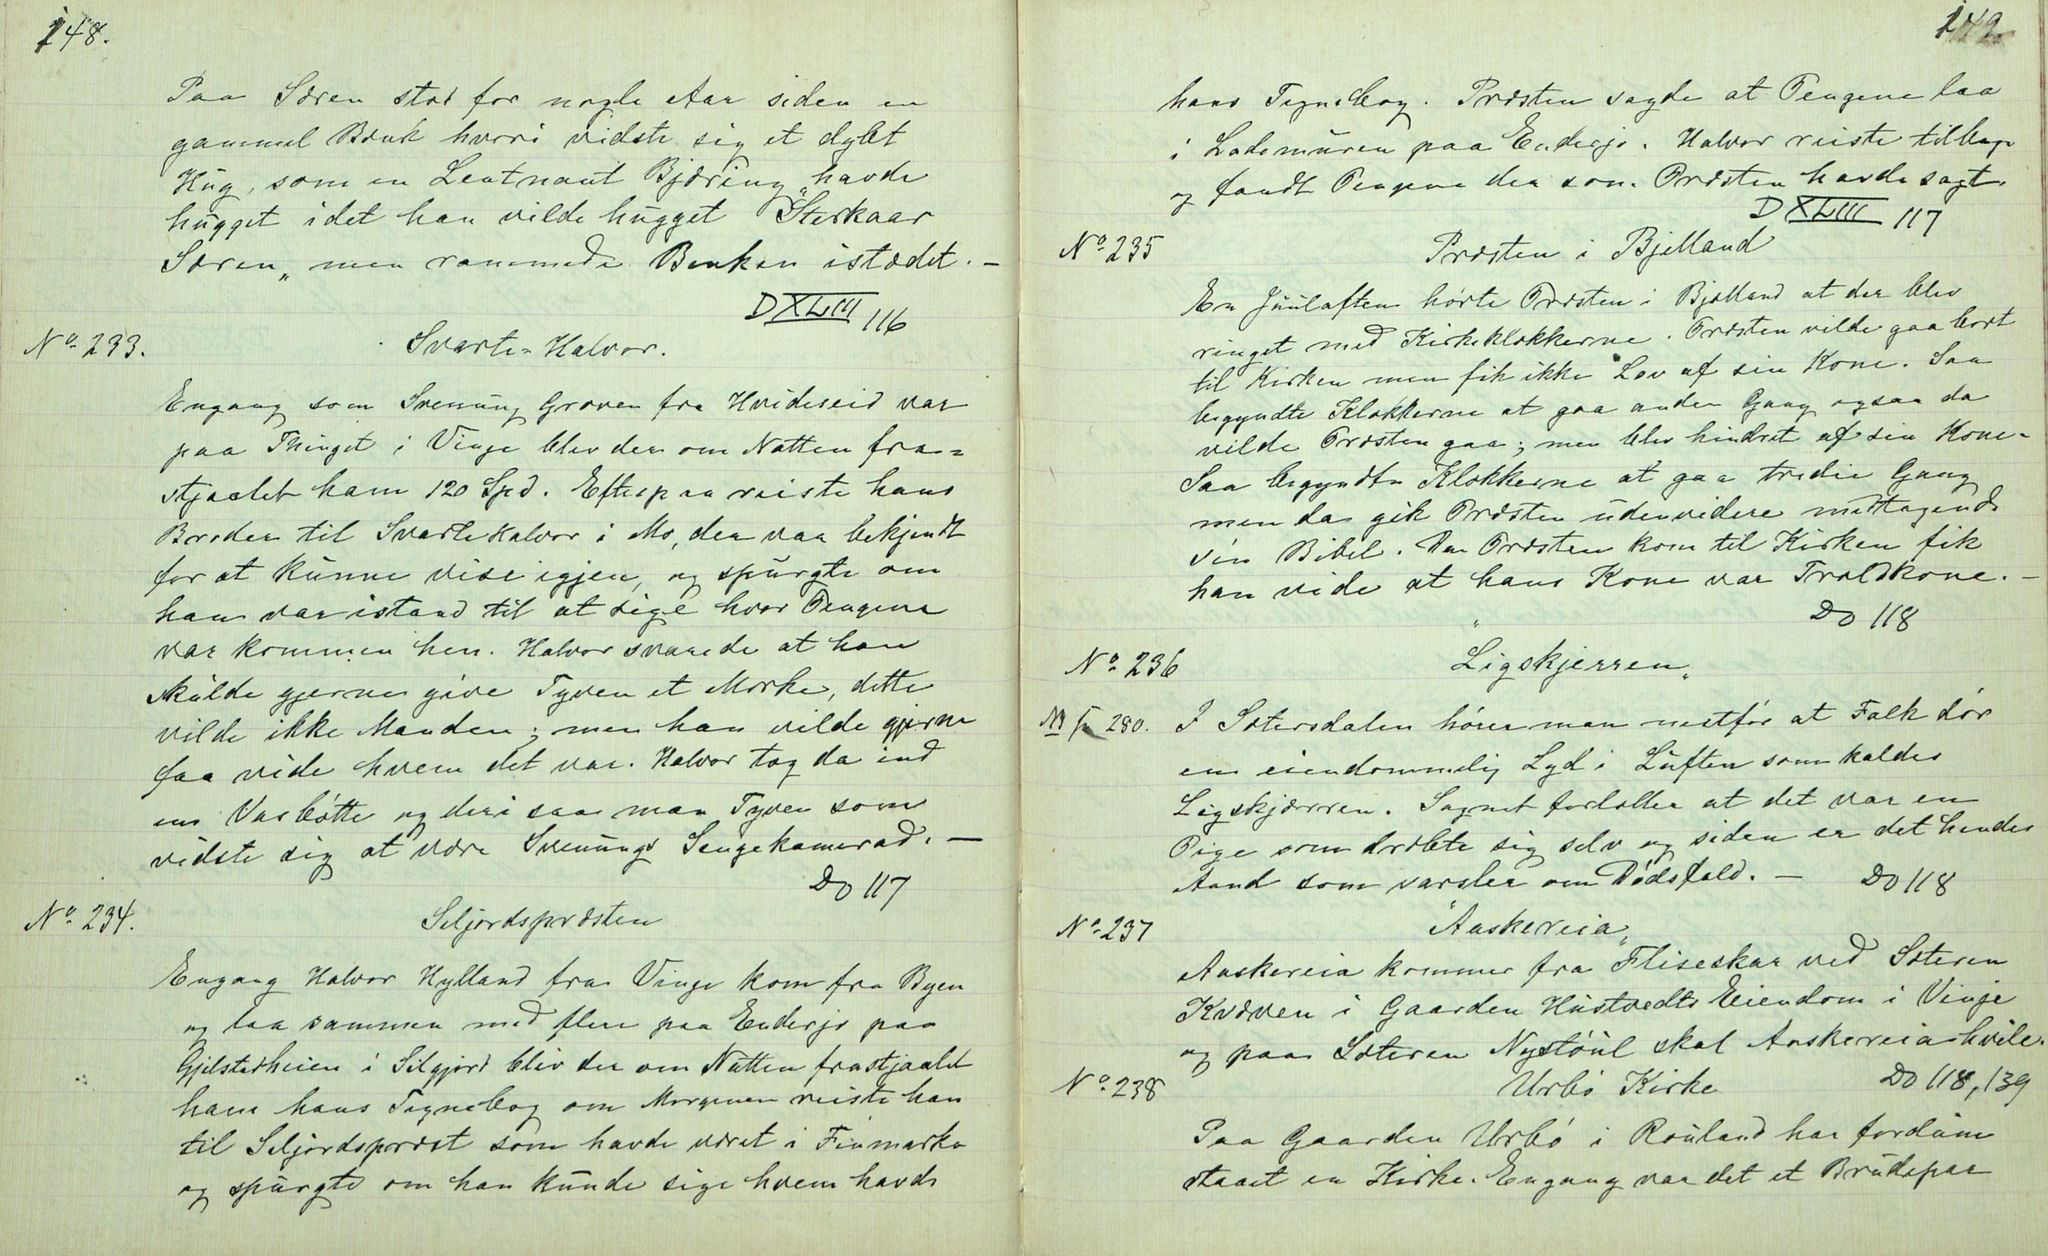 148.
Paa Søren stod for nogle Aar siden en
gammel Bænk hvori vidste sig et dybt
Hug, som en Leutnant Bjæring havde
hugget idet han vilde hugget "Sterkaar
Søren" men rammede Benken istædet. —
D XLIII 116
No 233. Svarte-Halvor.
Engang som Svenung Groven fra Hvideseid var
paa Thinget i Vinje blev der om Natten fra=
stjaalet ham 120 Spd. Efterpaa reiste hans
Broder til Svartehalvor i Mo, der var bekjendt
for at kunne vise igjen, og spurgte om
han var istand til at sige hvor Pengene
var kommen hen. Halvor svarede at han
skulde gjerne give Tyven et Mærke, dette
vilde ikke Manden; men han vilde gjerne
faa vide hvem det var. Halvor tog da ind
en Vasbøtte og deri saa man Tyven som
vidste sig at være Svenungs Sengekamerad. —
Do 117
No 234. Siljordspræsten
Engang Halvor Hylland fra Vinje kom fra Byen
og laa sammen med flere paa Enderjo paa
Gjelstadheien i Silgjord blev der om Natten frastjaalet
ham hans Tegnebog om Morgenen reiste han
til Siljordspræst som havde været i Finmarke
og spurgte om han kunde sige hvem havde
149
hans Tegnebog. Præsten sagde at Pengene laa
i Lademuren paa Enderjo. Halvor reiste tilbage
og fandt Pengene der som Præsten havde sagt.
D XLIII 117
No 235 Præsten i Bjelland
En Juulaften hørte Præsten i Bjelland at der blev
ringet med Kirkeklokkerne. Præsten vilde gaa bort
til Kirken men fik ikke Lov af sin Kone. Saa
begyndte Klokkerne at gaa anden Gang ogsaa da
vilde Præsten gaa; men blev hindret af sin Kone.
Saa begyndte Klokkerne at gaa tredie Gang
men da gik Præsten udenvidere medtagende
sin Bibel. Da Præsten kom til Kirken fik
han vide at hans Kone var Troldkone. —
Do 118
No 236 "Ligskjerren"
280. I Sætersdalen hører man nestfør at Folk dør
en eiendommelig Lyd i Luften som kaldes
Ligskjærren. Sagnet fortæller at det var en
Pige som dræbte sig selv og siden er det hendes
Aand som varsler om Dødsfald. — Do 118
No 237 "Aaskereia"
Aaskereia kommer fra Fliseskar ved Sæteren
Kvæven i Gaarden Hustvedts Eiendom i Vinje
og paa Sæteren Nystøul skal Aaskereia hvile.
Do 118, 139
No 238 Urbø Kirke
Paa Gaarden Urbø i Rauland har fordum
staaet en Kirke. Engang var det et Brudepar